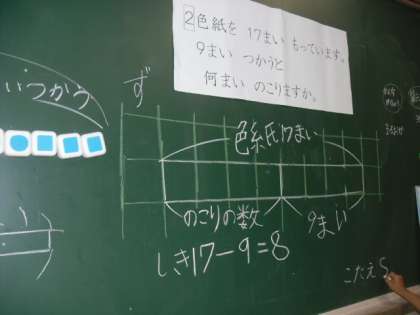 2 色紙を 17まい もっています。
9まい つかうと
何まい のこりますか。
いつかう
ず
色紙17まい
のこりの数
9まい
しき17-9=8
こたえ